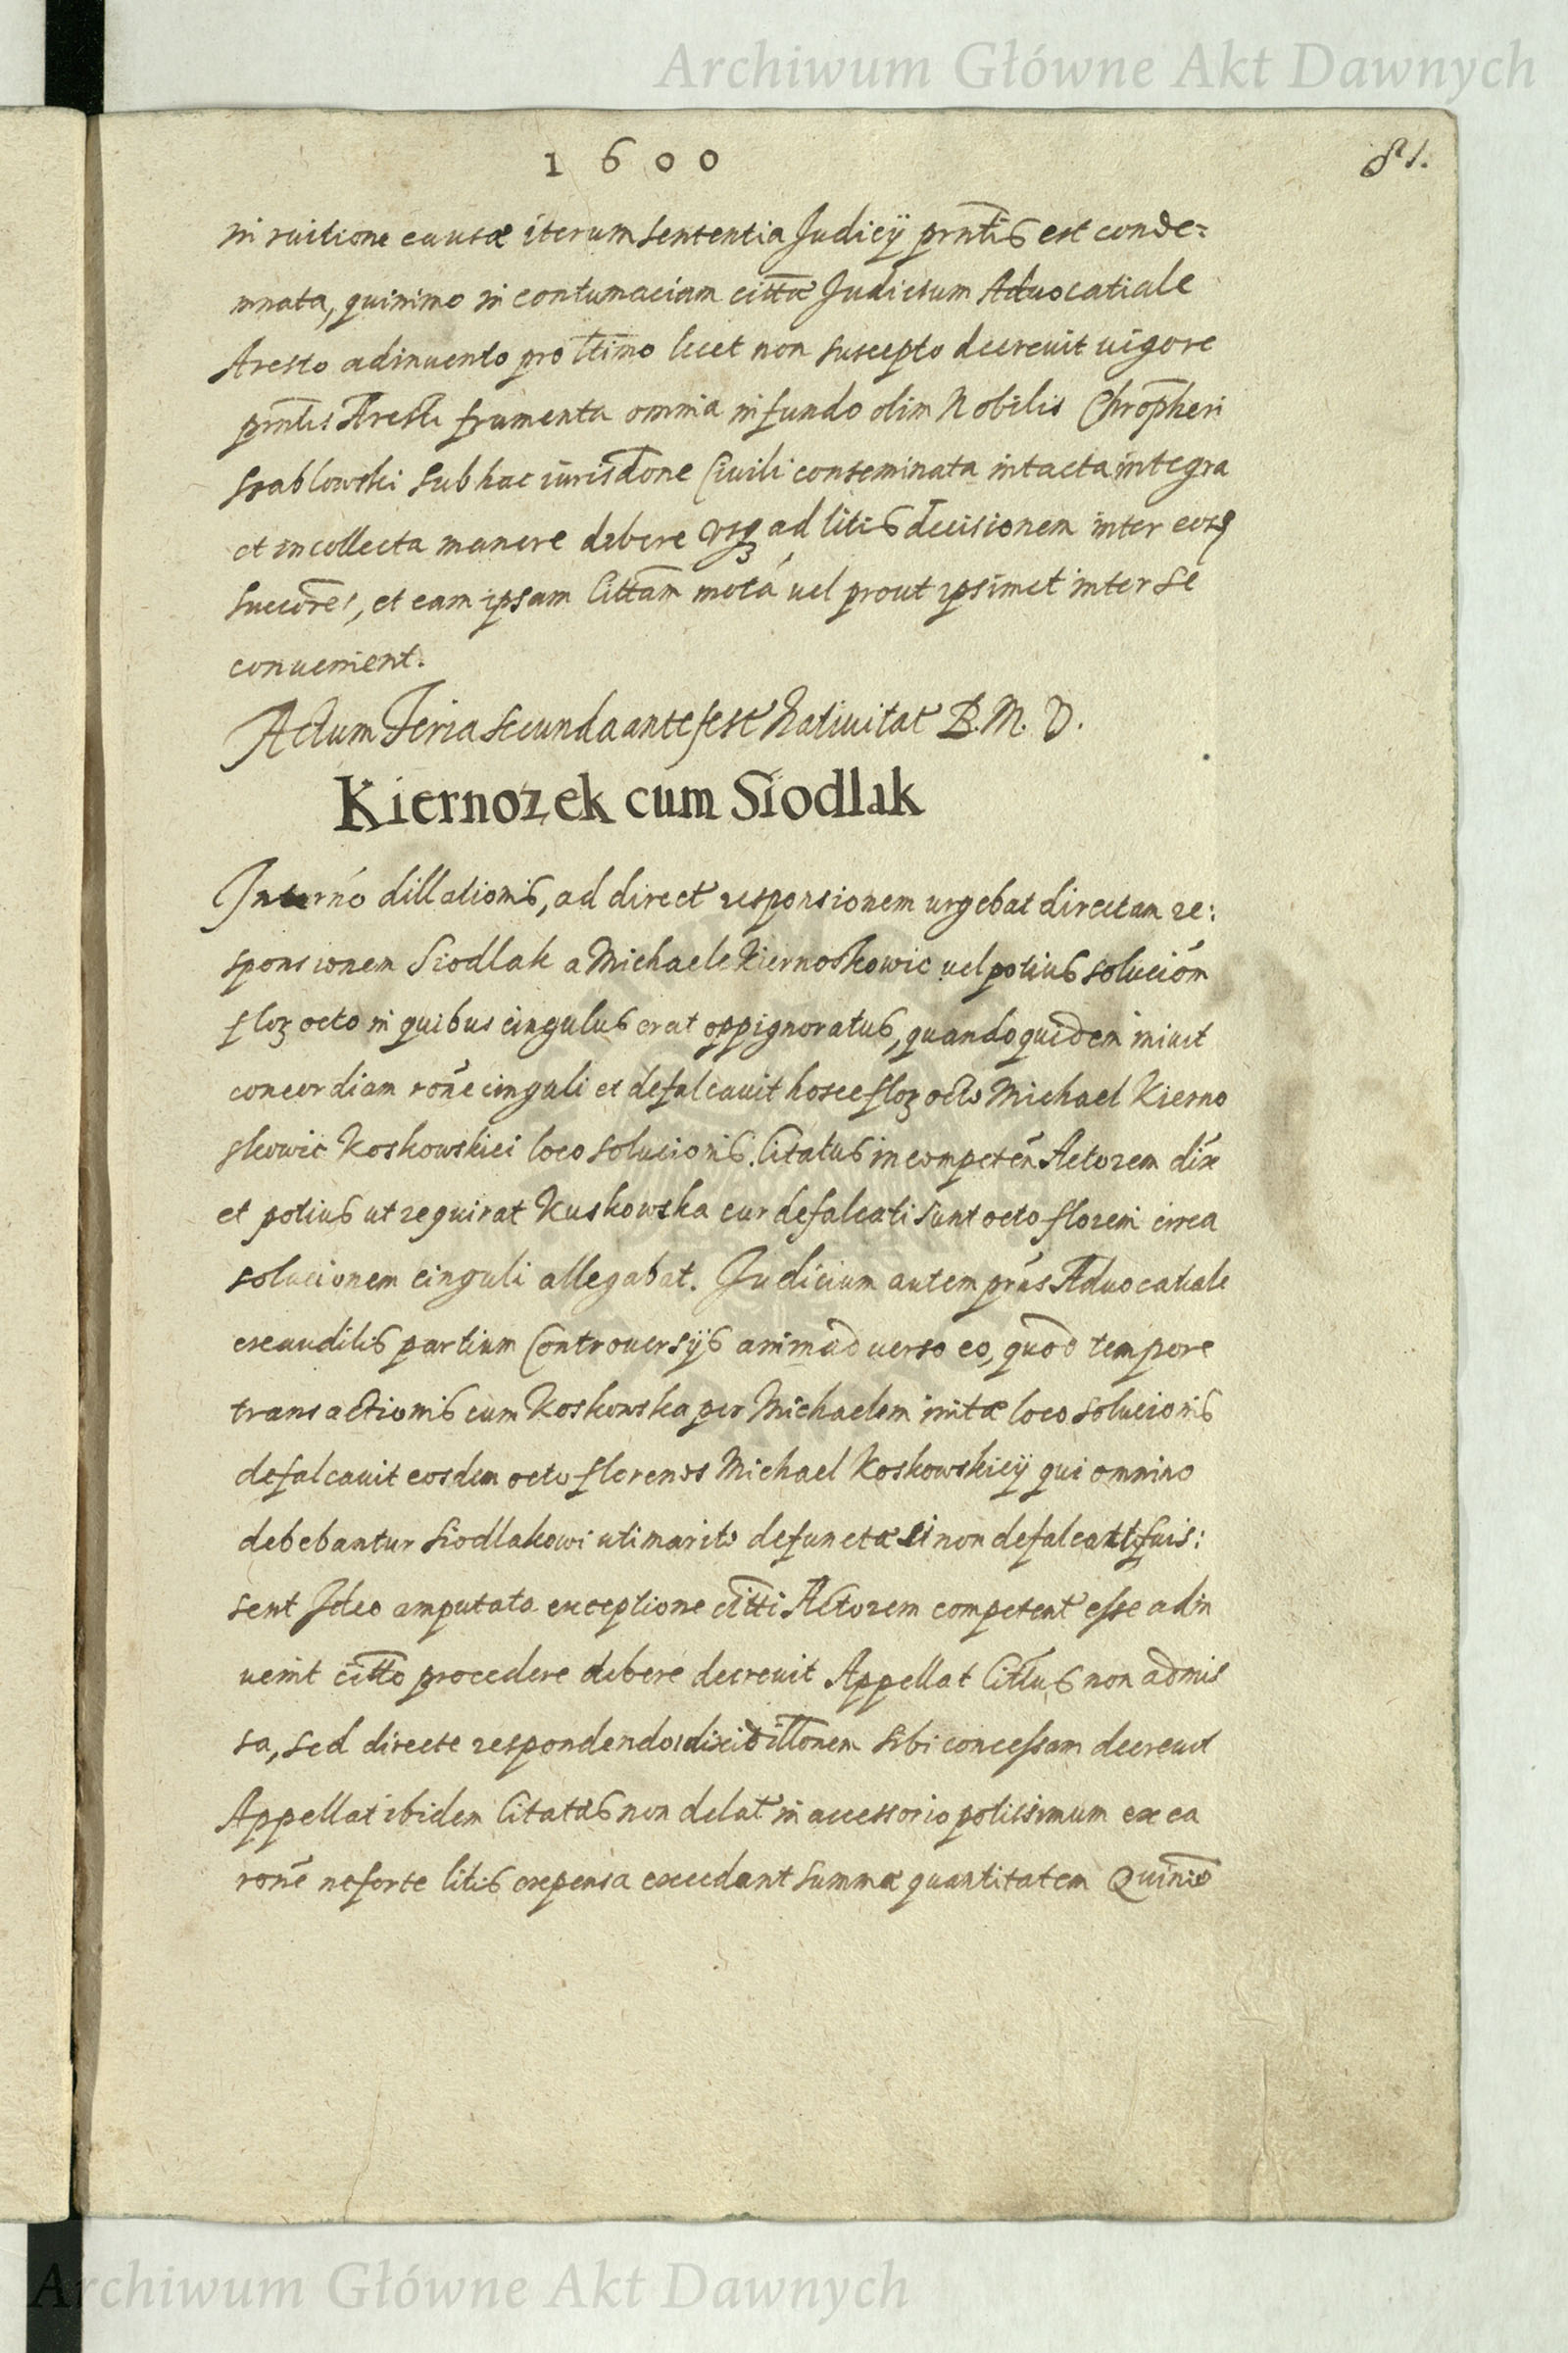 Archiwum Główne Akt Dawnych
1600
81.
in ruitione causæ iterum sententia Judicÿ prntis est conde=
mnata, quinimo in contumaciam cittæ Judicium Aduocatiale
Aresto adinuento pro ltimo licet non suscepto decreuit uigore
prntis Aresti frumenta omnia in fundo olim Nobilis Chropheri
Srablowski sub hac iurisdone Ciuili conseminata intacta integra
et incollecta manere debere usq ad litis decisionem inter eos
succores, et eam ipsam Cittam motá uel prout ipsimet inter se
conuenient.
Actum Feria secunda ante fest Natiuitat B. M. V.
Kiernozek cum Siodlak
In termo dillationis, ad direct responsionem urgebat directam re:
sponsionem Siodlak a Michaele Kiernoskowic uel potius solucióm
floz octo in quibus cingulus erat oppignoratus, quandoquidem iniuit
concordiam rone cinguli et defalcauit hosce floz octo Michael Kierno
skowic Koskowskiei loco solucionis. Citatus incompeten Actorem dix
et potius ut requirat Kuskowska cur defalcati sunt octo floreni circa
solucionem cinguli allegabat. Judicium autem prns Aduocatiale
exauditis partium Controuersÿs animaduerso eo, quod tempore
transactionis cum Koskowska per Michaelem initæ loco solucionis
defalcauit eosdem octo florenos Michael Koskowskiey qui omnino
debebantur Siodlakowi uti marito defunctæ si non defalcati fuis:
sent Ideo amputata exceptione citti Actorem competent esse adin
uenit citto procedere debere decreuit Appellat Cittus non admis
sa, sed directe respondendo dixi dillonem sibi concessam decreuit
Appellat ibidem Citatus non delat in accessorio potissimum ex ea
rone ne forte litis expensa excedant summæ quantitatem Quinio
Archiwum Główne Akt Dawnych